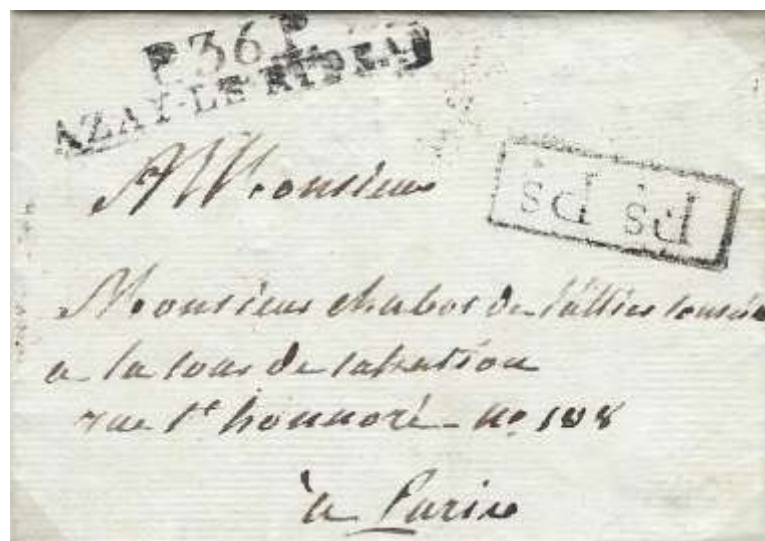 P.36.P.
AZAY-LE-RIDEAU
P. Ps. P. Ps.
A Monsieur
Monsieur chabot de l'allier
a la cour de cassation
rue St honnoré - no 108
à Paris